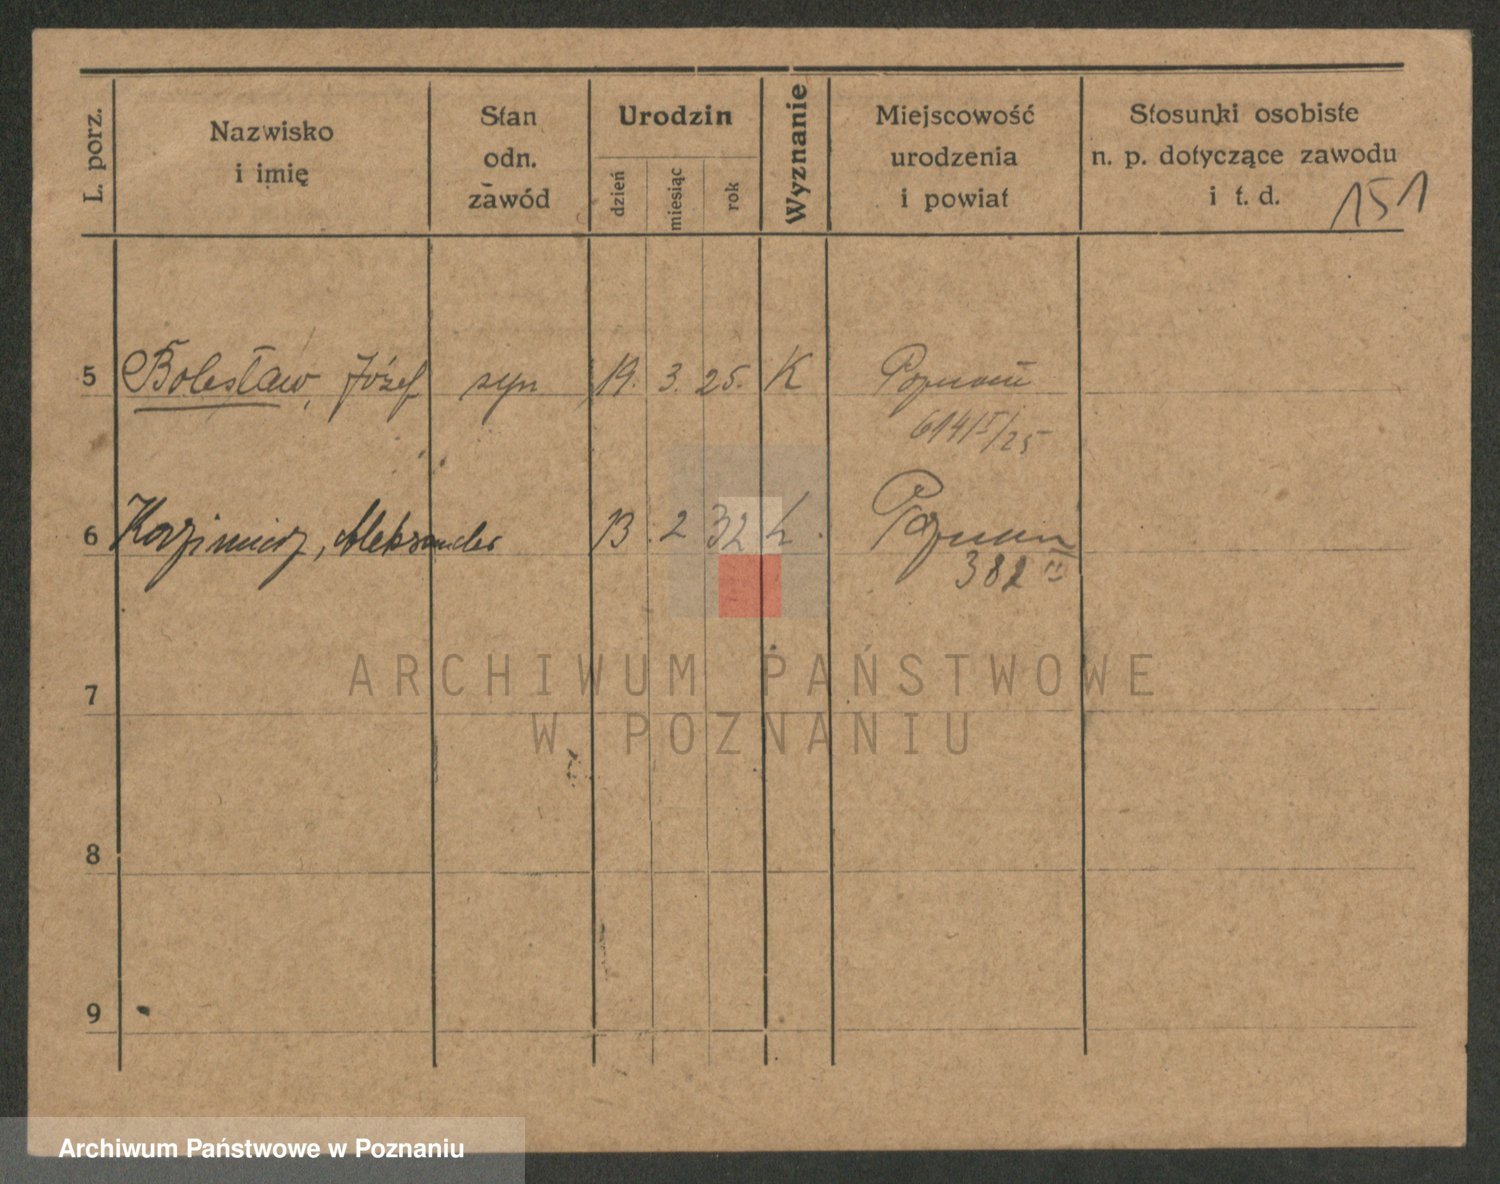 L. porz.
Nazwisko
i imię
Stan
odn.
zawód
Urodzin
dzień
miesiąc
rok
Wyznanie
Miejscowość
urodzenia
i powiat
Stosunki osobiste
n. p. dotyczące zawodu
i t. d.
151
5 Bolesław, Józef syn 19. 3. 25. K Poznań
614/I/25
6 Kazimierz, Aleksander 13. 2 32 k. Poznań
382 II
7
8
9
ARCHIWUM PAŃSTWOWE
W POZNANIU
Archiwum Państwowe w Poznaniu